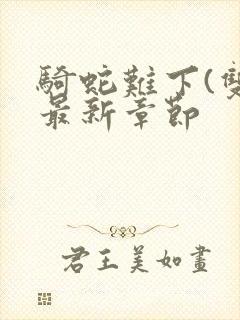 騎蛇難下(雙
最新章節
君王美如畫